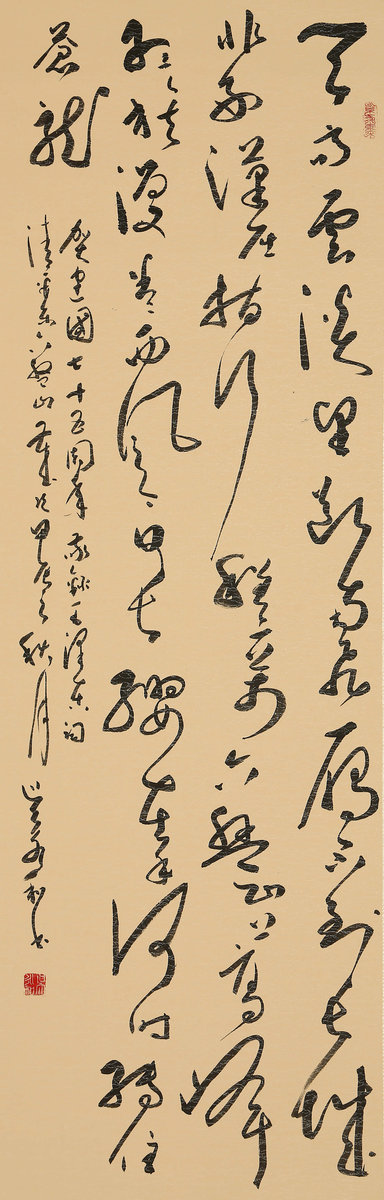 天高雲淡望斷南飛雁不到長城
非好漢屈指行程二萬六盤山上高峰
紅旗漫卷西風今日長纓在手何時縛住
蒼龍
賀建國七十五周年敬錄毛澤東詞
清平樂六盤山甲辰之秋月書